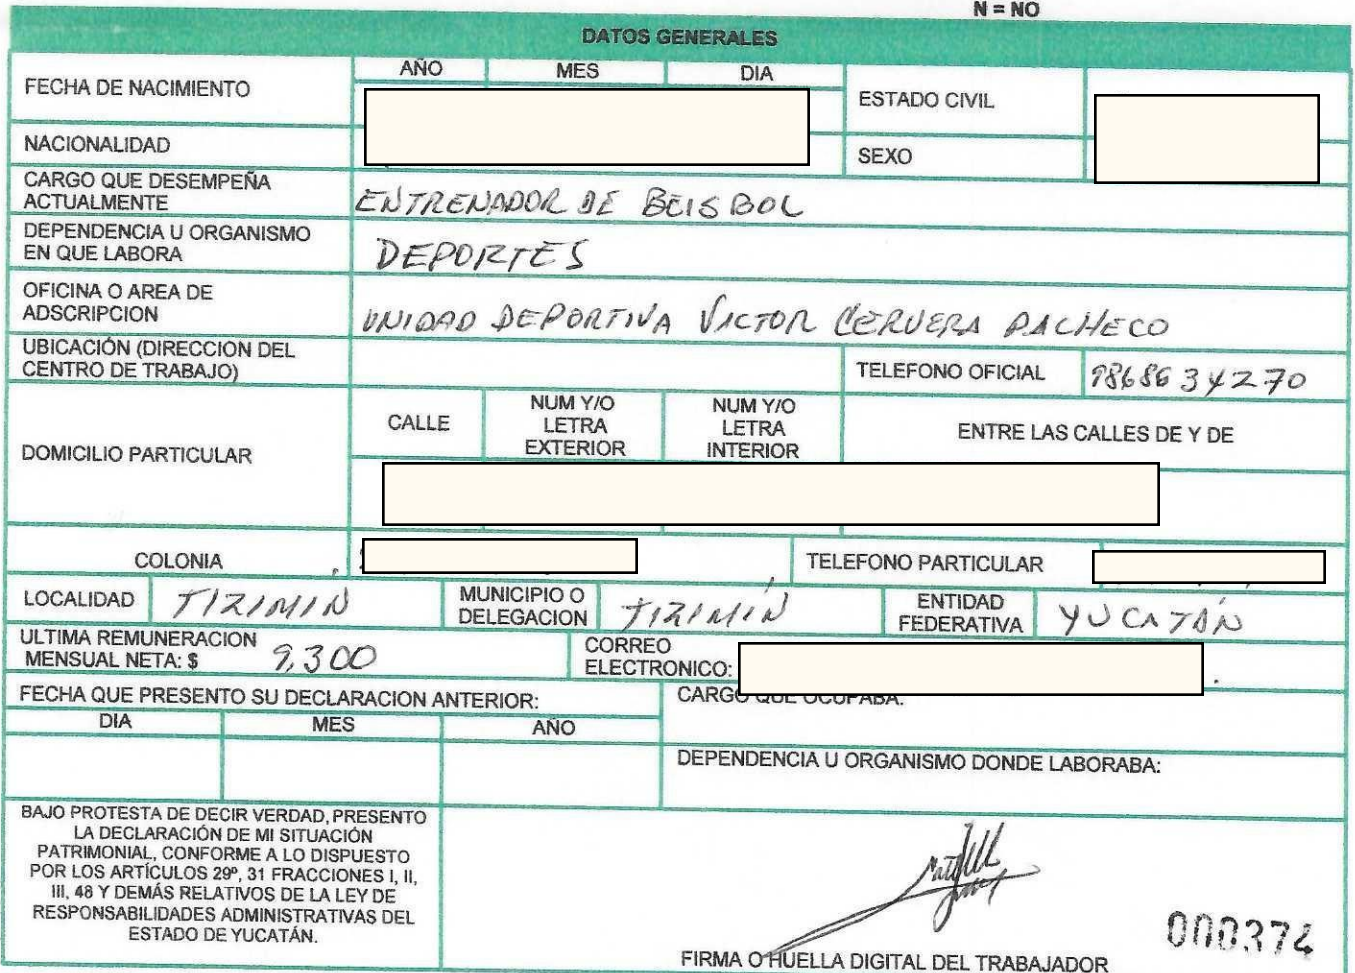 N = NO
DATOS GENERALES
FECHA DE NACIMIENTO
AÑO MES DIA
ESTADO CIVIL
NACIONALIDAD
SEXO
CARGO QUE DESEMPEÑA
ACTUALMENTE
ENTRENADOR DE BEISBOL
DEPENDENCIA U ORGANISMO
EN QUE LABORA
DEPORTES
OFICINA O AREA DE
ADSCRIPCION
UNIDAD DEPORTIVA VICTOR CERVERA PACHECO
UBICACIÓN (DIRECCION DEL
CENTRO DE TRABAJO)
TELEFONO OFICIAL 9868634270
DOMICILIO PARTICULAR
CALLE
NUM Y/O
LETRA
EXTERIOR
NUM Y/O
LETRA
INTERIOR
ENTRE LAS CALLES DE Y DE
COLONIA
TELEFONO PARTICULAR
LOCALIDAD TIZIMIN
MUNICIPIO O
DELEGACION
TIZIMIN
ENTIDAD
FEDERATIVA
YUCATÁN
ULTIMA REMUNERACION
MENSUAL NETA: $ 9,300
CORREO
ELECTRONICO:
FECHA QUE PRESENTO SU DECLARACION ANTERIOR:
DIA MES AÑO
CARGO QUE OCUPABA:
DEPENDENCIA U ORGANISMO DONDE LABORABA:
BAJO PROTESTA DE DECIR VERDAD, PRESENTO
LA DECLARACIÓN DE MI SITUACIÓN
PATRIMONIAL, CONFORME A LO DISPUESTO
POR LOS ARTÍCULOS 29º, 31 FRACCIONES I, II,
III, 48 Y DEMÁS RELATIVOS DE LA LEY DE
RESPONSABILIDADES ADMINISTRATIVAS DEL
ESTADO DE YUCATÁN.
FIRMA O HUELLA DIGITAL DEL TRABAJADOR
000374